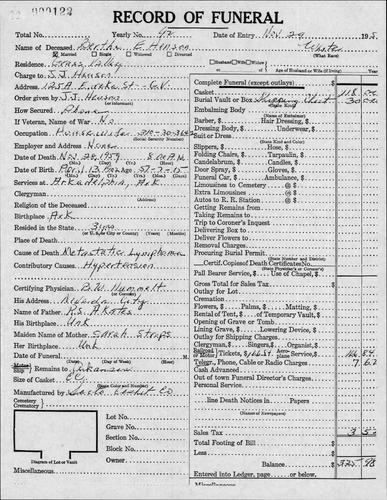 000122
RECORD OF FUNERAL
Total No. Yearly No. 92 Date of Entry Nov. 29 195
Name of Deceased Bertha E. Henson White
Married Single Widowed Divorced
Residence Grass Valley
Charge to J.J. Henson
Address 125A Eureka St - G.V.
Order given by J.J. Henson
How Secured Phone
If Veteran, Name of War No
Occupation Housewife
(Social Security Number)
Employer and Address None
Date of Death Nov. 28, 1959 8:00 A.M.
Date of Birth Apr. 13, 1902 57-7-15
Services at Arkadelphia, Ark
Clergyman
Religion of the Deceased
Birthplace Ark
Resided in the State 3 yrs
(or U.S., City or County) (Years) (Months)
Place of Death
Cause of Death Metastatic Lymphoma
Contributory Causes Hypertension
Certifying Physician B.W. Hummelt
His Address Nevada City
Name of Father R.S. Akates
His Birthplace Unk
Maiden Name of Mother Sarah Straps
Her Birthplace Unk
Date of Funeral
(Date) (Day of Week) (Hour)
Remains to Arkansas
Size of Casket
(State Color and Number)
Manufactured by Sacto Casket Co
Cemetery
Crematory
Lot No.
Grave No.
Section No.
Block No.
Owner
Diagram of Lot or Vault
Miscellaneous
Husband Wife Widow
Age of Husband or Wife (if living)
Complete Funeral (except outlays)
Casket 118 00
Burial Vault or Box Shipping Chest 30 00
Embalming Body
(Name of Embalmer)
Barber, Hair Dressing,
Dressing Body, Underwear,
Suit or Dress
(State Kind and Color)
Slippers, Hose,
Folding Chairs, Tarpaulin,
Candelabrum, Candles,
Door Spray, Gloves,
Funeral Car, Ambulance
Limousines to Cemetery @ $
Extra Limousines @ $
Autos to R. R. Station @ $
Getting Remains from
Taking Remains to
Trip to Coroner's Inquest
Delivering Box to
Deliver Flowers to
Removal Charges
Procuring Burial Permit
(State Number and District)
Certif. Copies of Death Certificates No.
(State Physician's or Coroner's)
Pall Bearer Service, Use of Chapel,
Gross Total for Sales Tax
Outlay for Lot
Cremation
Flowers, Palms, Matting,
Rental of Tent, of Temporary Vault,
Opening of Grave or Tomb
Lining Grave, Lowering Device
Outlay for Shipping Charges
Clergyman, Singers, Organist,
Tickets, 166.84 166 84
Telegr., Phone, Cable or Radio Charges 7 62
Cash Advanced
Out of town Funeral Director's Charges
Personal Service
line Death Notices in Papers
(Names of Newspapers)
Sales Tax 3 52
Total Footing of Bill
Less
Balance 325 98
Entered into Ledger, page or below.
Miscellaneous